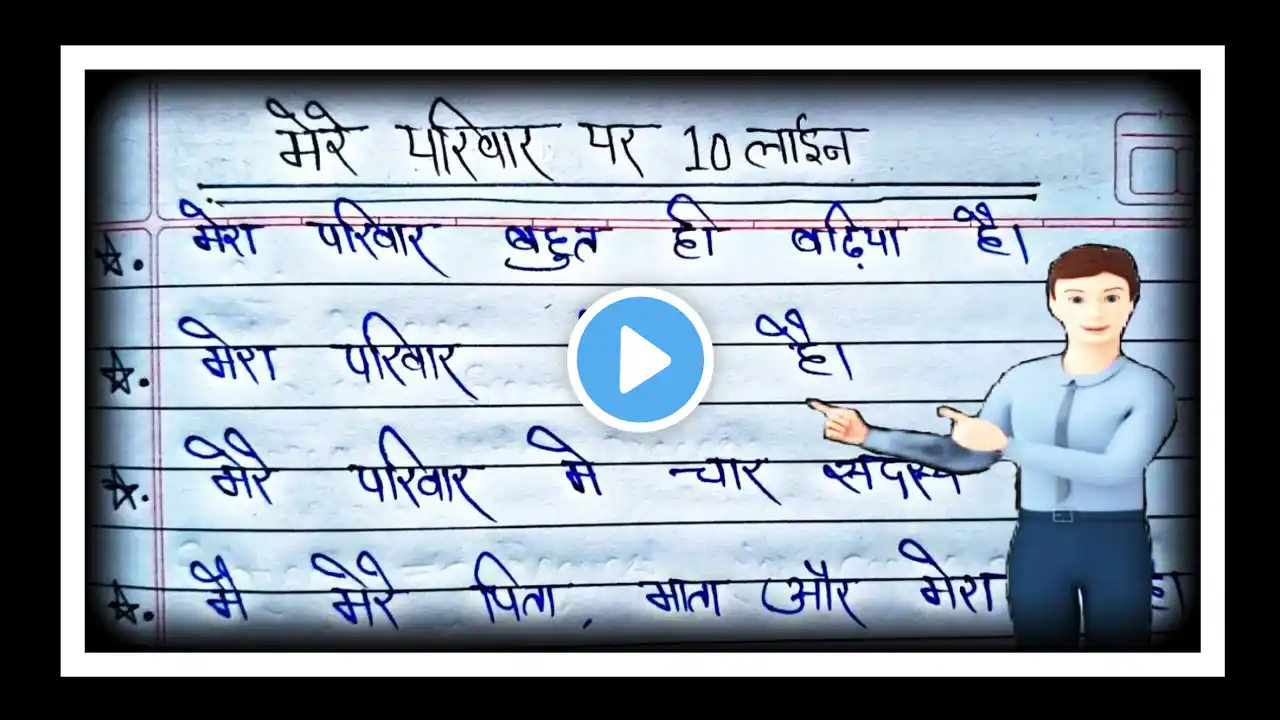 मेरे परिवार पर 10 लाईन
मेरा परिवार बहुत ही बढ़िया है।
मेरा परिवार है।
मेरे परिवार मे चार सदस्य
मै मेरे पिता, माता और मेरा है।